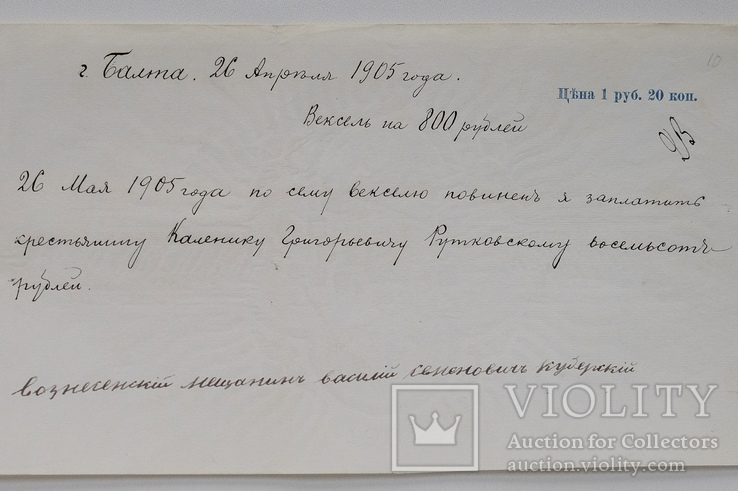 г. Балта. 26 Апрѣля 1905 года.
10
Цѣна 1 руб. 20 коп.
Вексель на 800 рублей
26 Мая 1905 года по сему векселю повиненъ я заплатить
крестьянину Каленику Григорьевичу Рутковскому восемьсотъ
рублей.
вознесенскій мещанинъ василій семеновичъ
VIOLITY
Auction for Collectors
auction.violity.com